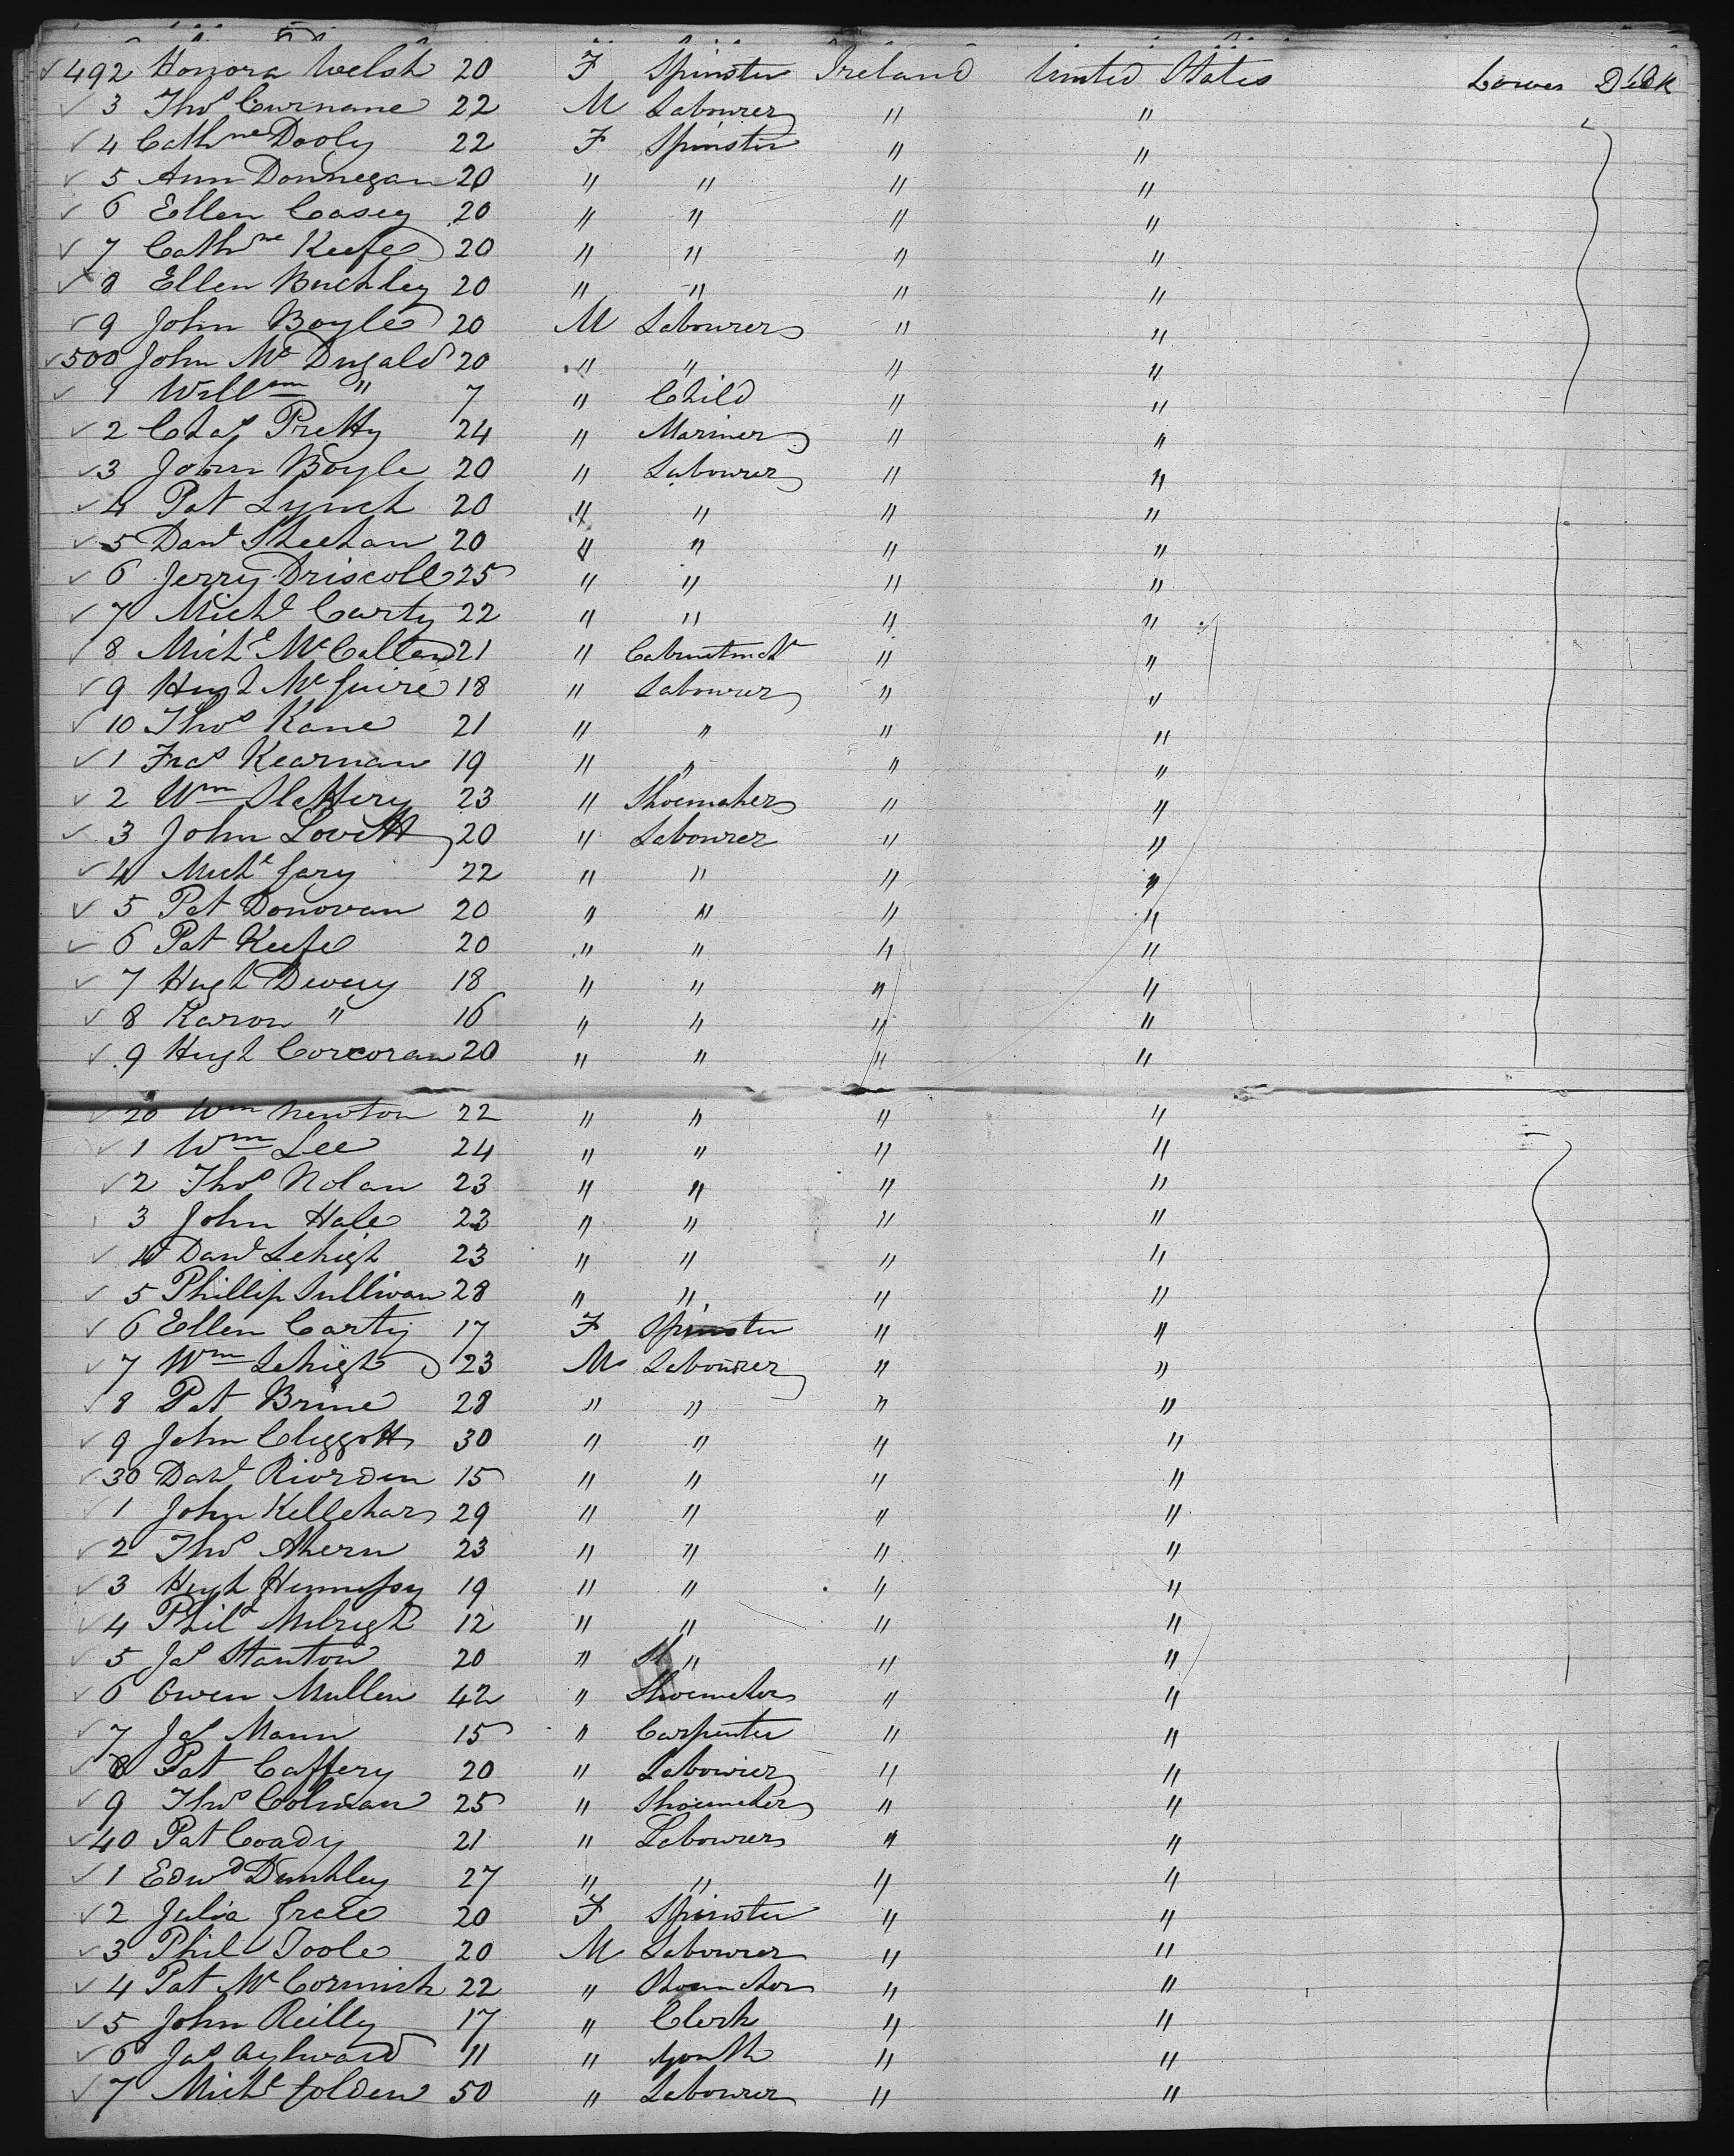 492 Honora Welsh 20 F Spinster Ireland United States Lower Deck
3 Thos Curnane 22 M Labourer " "
4 Cathne Dooly 22 F Spinster " "
5 Ann Donnegan 20 " " " "
6 Ellen Casey 20 " " " "
7 Cathne Keefe 20 " " " "
8 Ellen Buckley 20 " " " "
9 John Boyle 20 M Labourer " "
500 John Mc Dugald 20 " " " "
1 Willm " 7 " Child " "
2 Chas Pretty 24 " Mariner " "
3 John Boyle 20 " Labourer " "
4 Pat Lynch 20 " " " "
5 Danl Sheehan 20 " " " "
6 Jerry Driscoll 25 " " " "
7 Michl Carty 22 " " " "
8 Michl McCallan 21 " Cabinetmakr " "
9 Hugh McGuire 18 " Labourer " "
10 Thos Kane 21 " " " "
1 Fras Kearnan 19 " " " "
2 Wm Slattery 23 " Shoemaker " "
3 John Lovett 20 " Labourer " "
4 Michl Gary 22 " " " "
5 Pat Donovan 20 " " " "
6 Pat Keefe 20 " " " "
7 Hugh Devery 18 " " " "
8 Karon " 16 " " " "
9 Hugh Corcoran 20 " " " "
20 Wm Newton 22 " " " "
1 Wm Lee 24 " " " "
2 Thos Nolan 23 " " " "
3 John Hale 23 " " " "
4 Danl Lehigh 23 " " " "
5 Phillip Sullivan 28 " " " "
6 Ellen Carty 17 F Spinster " "
7 Wm Lehigh 23 M Labourer " "
8 Pat Brine 28 " " " "
9 John Cliggott 30 " " " "
30 Danl Riorden 15 " " " "
1 John Kellehar 29 " " " "
2 Thos Ahern 23 " " " "
3 Hugh Hennessy 19 " " " "
4 Phil 12 " " " "
5 Jas Stanton 20 " " " "
6 Owen Mullen 42 " Shoemaker " "
7 Jas Mann 15 " Carpenter " "
8 Pat Caffery 20 " Labourer " "
9 Thos Colman 25 " Shoemaker " "
40 Pat Coady 21 " Labourer " "
1 Edwd Dunkley 27 " " " "
2 Julia Grace 20 F Spinster " "
3 Phil Toole 20 M Labourer " "
4 Pat McCormick 22 " Shoemaker " "
5 John Reilly 17 " Clerk " "
6 Jas Aylward 11 " Youth " "
7 Michl Golden 50 " Labourer " "